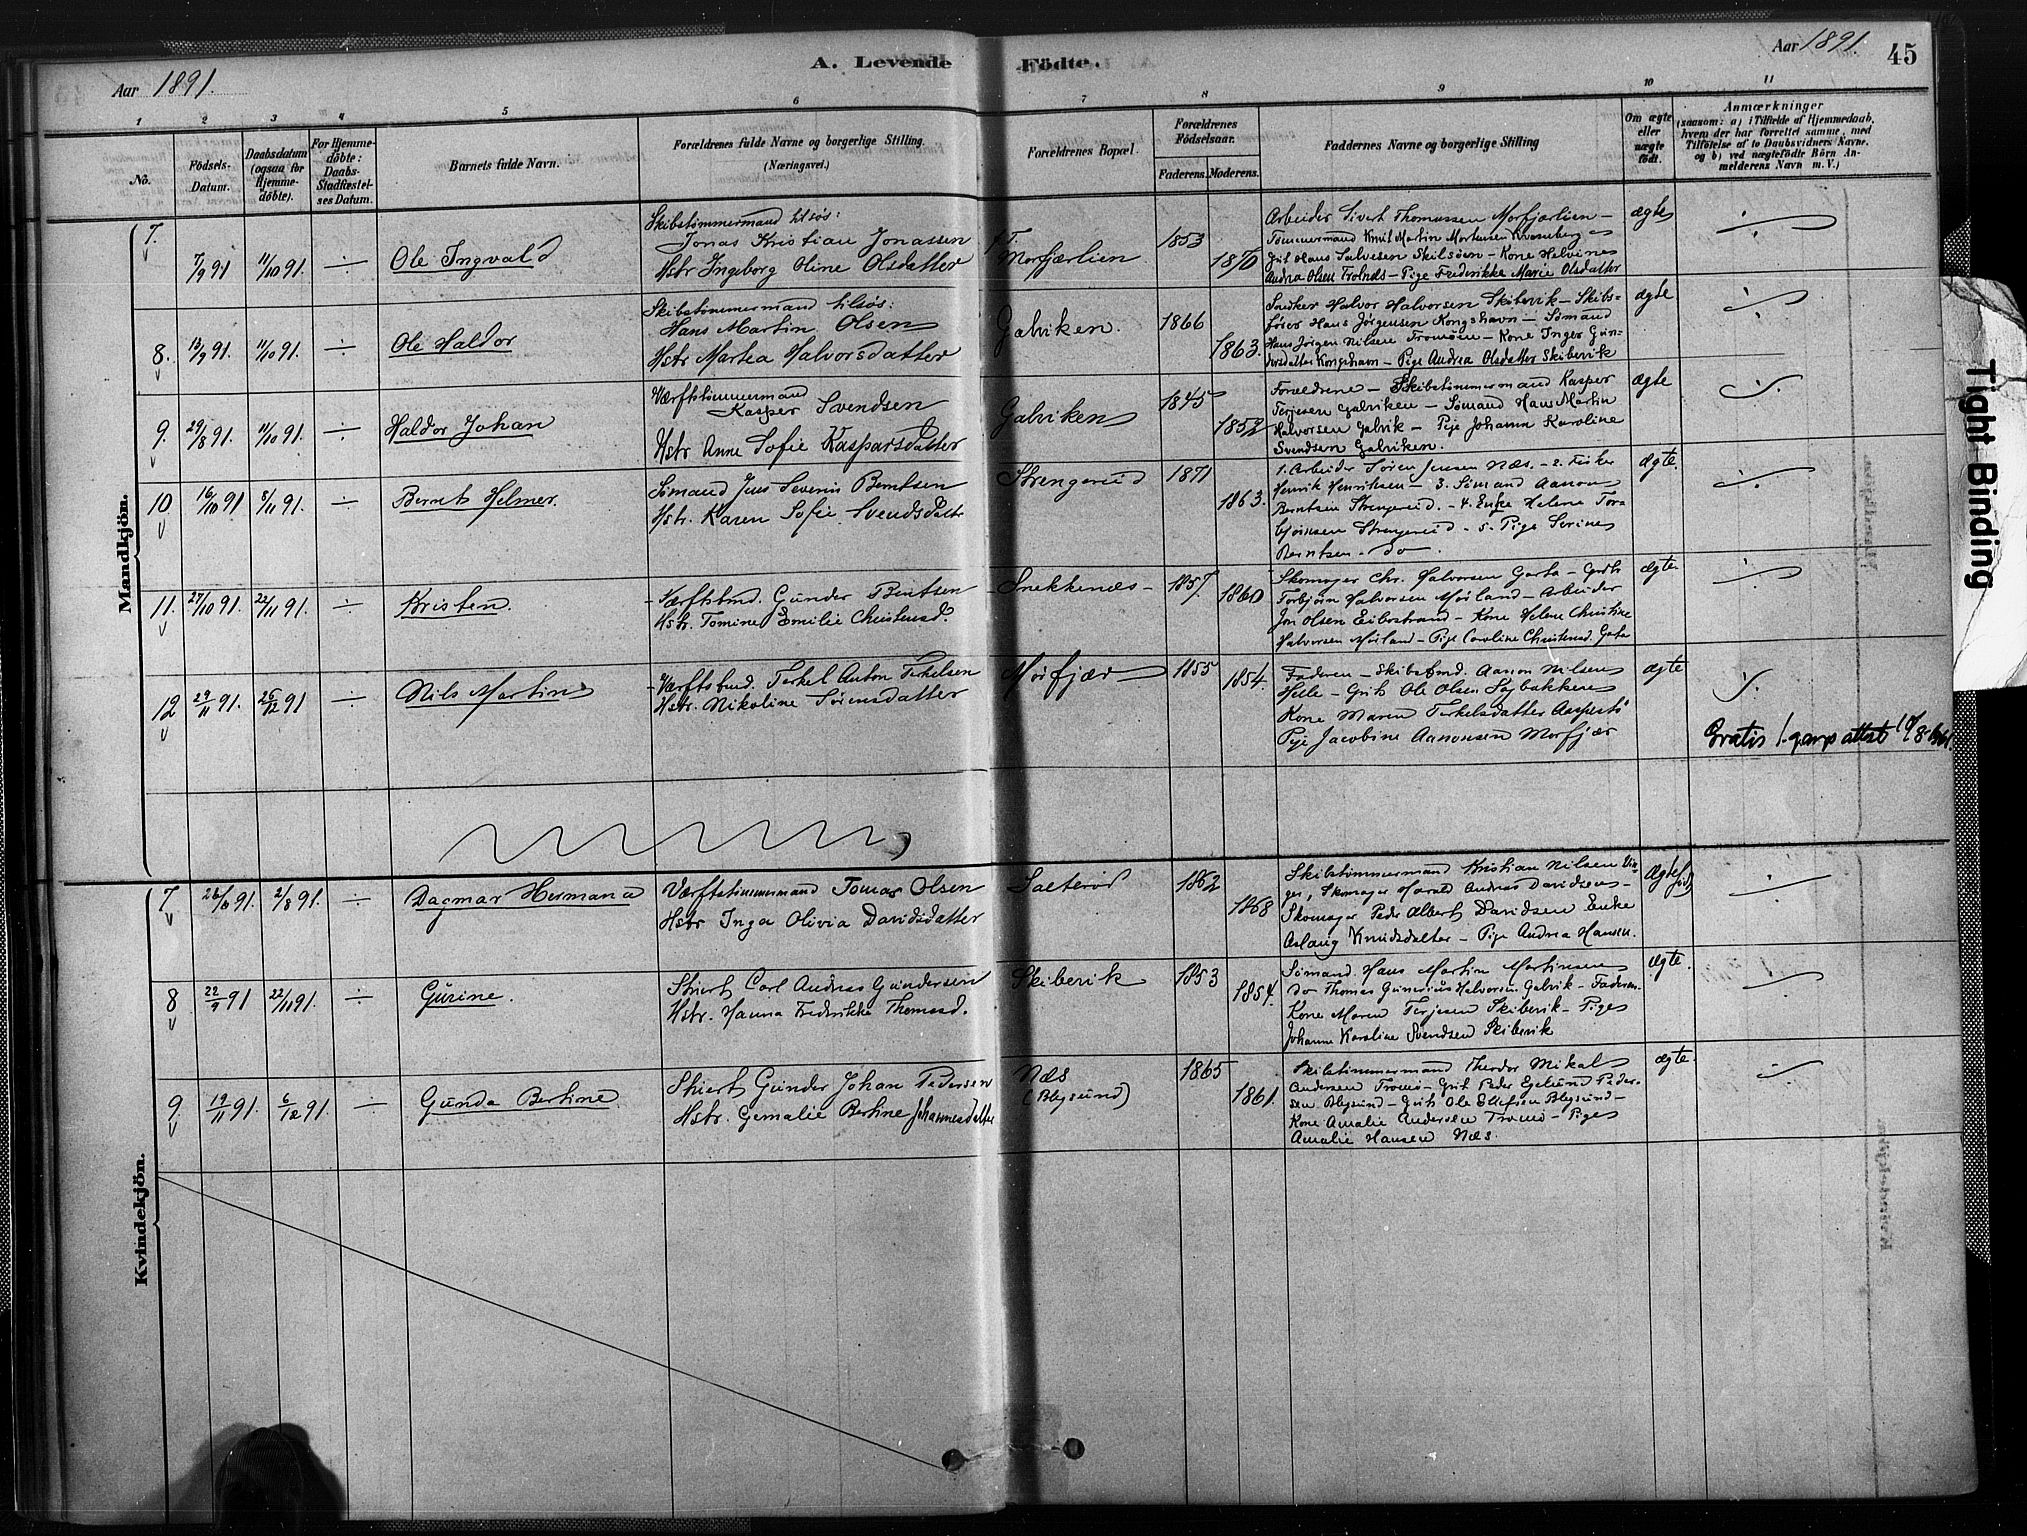 Aar 1891.
A. Levende Födte.
Aar 1891.
45
1 2 3 4 5 6 7 8 9 10 11
No.
Födsels-Datum.
Daabsdatum (ogsaa for Hjemmedöbte).
For Hjemmedöbte: Daabs-Stadfæstelses Datum.
Barnets fulde Navn.
Forældrenes fulde Navne og borgerlige Stilling.
(Næringsvei.)
Forældrenes Bopæl.
Forældrenes Födselsaar.
Faderens. Moderens.
Faddernes Navne og borgerlige Stilling
Om ægte eller uægte födt.
Anmærkninger
(saasom: a) i Tilfælde af Hjemmedaab, hvem der har forrettet samme, med Tilföielse af to Daabsvidners Navne, og b) ved uægtefödte Börn Anmelderens Navn m. V.)
Mandkjön.
7. 7/9 91 11/10 91. ÷ Ole Ingvald
Skibstömmermand tilsös:
Jonas Kristian Jonassen
Hstr Ingeborg Oline Olsdatter
Morfjærlien 1853 1870
Arbeider Sivert Thomassen Morfjærlien –
Tømmermand Knut Martin Mortensen
Hans Salvesen – Kone Helvine
Andrea Olsen – Pige Frederikke Marie Olsdatter
ægte
8. 13/9 91. 11/10 91. ÷ Ole Haldor
Skibstömmermand tilsös:
Hans Martin Olsen
Hstr Martea Halvorsdatter
Galviken. 1866 1863.
Snedker Halvor Halvorsen Skibervik – Skibs-
förer Hans Jörgensen Kongshavn – Sömand
Hans Jörgen Nilsen Tromöen – Kone Inger Gun-
dersdatter Kongshavn – Pige Andrea Olsdatter Skibervik
ægte
9. 29/8 91. 11/10 91. ÷ Haldor Johan
Værftstömmermand
Kasper Svendsen
Hstr Anne Sofie Kaspersdatter
Galviken 1845 1852
Forældrene – Skibstömmermand Kasper
Terjesen Galviken – Sömand Hans Martin
Halvorsen Galvik – Pige Johanne Karoline
Svendsen Galviken.
ægte
10 16/10 91 8/11 91. ÷ Bernt Helmer.
Sömand Jens Severin Berntsen
Hstr. Karen Sofie Svendsdatr
Strengerud 1871 1863.
1. Arbeider Sören Jensen Næs. – 2. Fisker
Henrik Henriksen – 3. Sömand Aanon
Berntsen Strengerud. – 4. Enke Helene Tor-
björnsen Strengerud – 5. Pige Serine
Berntsen – do.
ægte.
11. 27/10 91. 22/11 91. ÷ Kristen.
Værftstmd. Gunder Bentsen
Hstr. Tomine Emilie Christensd.
Snekkenæs – 1857 1860
Skomager Chr. Halvorsen Garta – Grdb
Torbjörn Halvorsen Mörland – Arbeider
Jon Olsen Eibostrand – Kone Helene Christine
Halvorsen Mörland – Pige Caroline Christensd. Gata
ægte
12 29/11 91. 26/12 91 ÷ Nils Martin
Værftstmd. Terkel Anton Terkelsen
Hstr. Nikoline Sörensdatter
Morfjær 1855 1854.
Faderen – Skibstmd. Aanon Nilsen
Hele – Grdb Ole Olsen
Kone Maren Terkelsdatter
Pige Jacobine Aanonsen Morfjær
ægte
Gratis 1. attest
Kvindekjön.
7 2/8 91. ÷ Dagmar Hermana
Værftstömmermand Tomas Olsen
Hstr Inga Olivia Davidsdatter
Sæteröd 1862 1868
Skibstömmermand Kristian Nilsen Vin-
ger, Skomager Harald Andreas Davidsen –
Skomager Peder Albert Davidsen Enke
Aslaug Knudsdatter – Pige Andrea Hansen.
ægte
8 22/9 91 22/11 91. ÷ Gurine.
Carl Andreas Gundersen
Hstr. Hanna Fredrikke Thomasd.
Skibervik 1853 1854.
Sömand Hans Martin Martinsen
Do Thomas Halvorsen Galvik – Faderen.
Kone Maren Terjesen Skibervik – Pige
Johanne Karoline Svendsen Skibervik
ægte.
9. 19/11 91. 6/12 91. ÷ Gunda Bertine
Gunder Johan Pedersen
Hstr. Gemalie Bertine Johannesdatter
Næs (Blegsund) 1865 1861.
Skibstömmermand Theodor Mikal
Andersen Tromö – Grdb Peder Egelund Peder-
sen Blegsund – Grdb Ole Ellefsen Blegsund –
Kone Amalie Andersen Tromö – Pige
Amalie Hansen Næs.
ægte.
Tight Binding